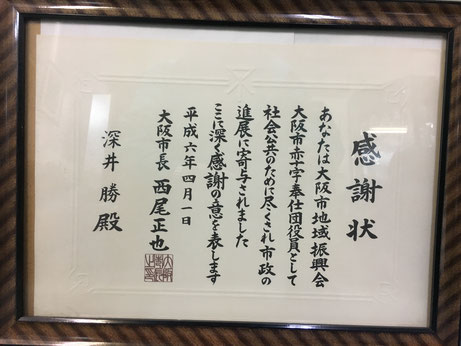 感謝状
あなたは大阪市地域振興会
大阪市赤十字奉仕団役員として
社会公共のために尽くされ市政の
進展に寄与されました
ここに深く感謝の意を表します
平成六年四月一日
大阪市長 西尾正也
深井勝殿